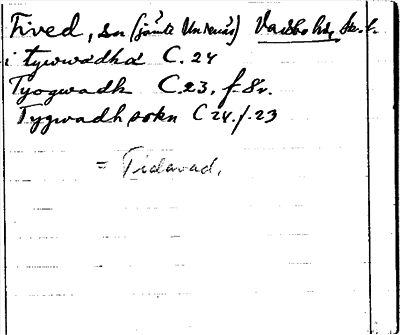 Tived, sn (jämte Undenäs) Vadsbo hd, Sk. l.
i tywwadha C. 24
Tyogwadh C.23. f. 8v.
Tygwadh sokn C 24. f. 23
= Tidavad.